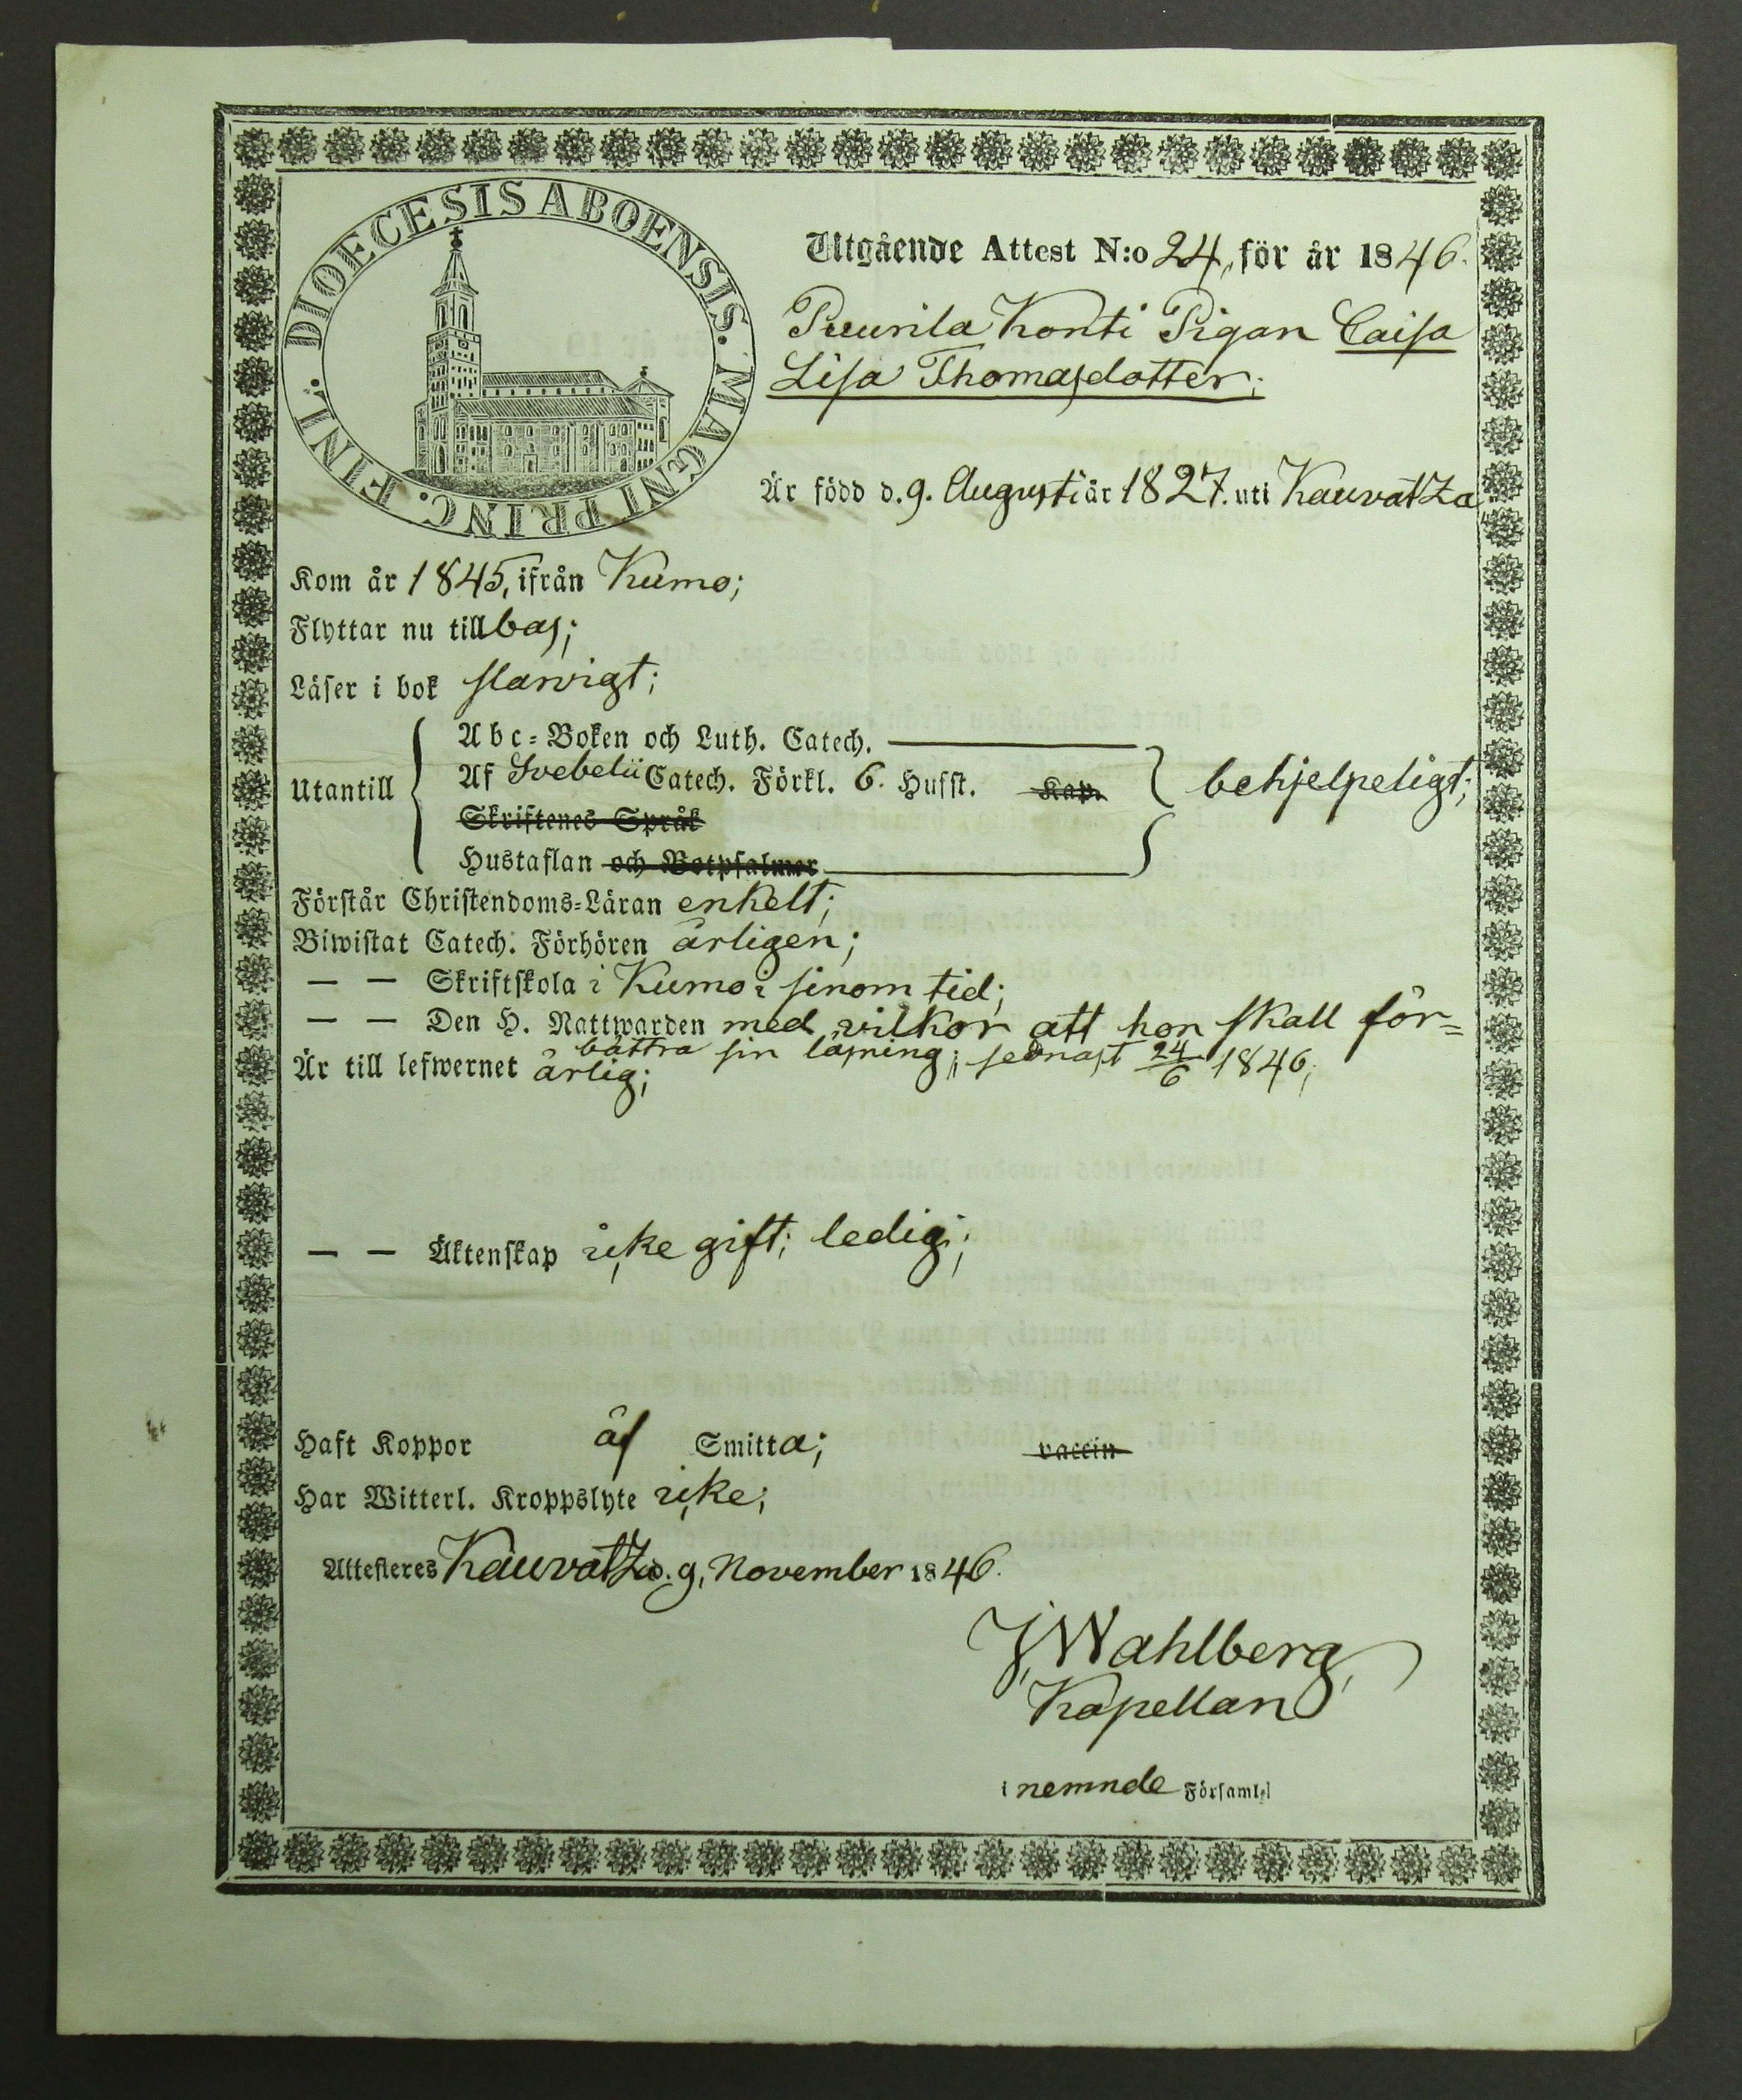 DIOECESIS ABOENSIS. MAGNI PRINC. FINL.
Utgående Attest N:o 24, för år 1846.
Puurila Konti Pigan Caisa
Lisa Thomasdotter;
Är född d. 9. Augusti år 1827. uti Kauvatza,
Kom år 1845, ifrån Kumo;
Flyttar nu till bas;
Läser i bok slarvigt;
Utantill
Abc-Boken och Luth. Catech.
Af Svebelii Catech. Förkl. 6. Husst. Kap. behjelpeligt;
Skriftenes Språk
Hustaflan och Botpsalmer
Förstår Christendoms-Läran enkelt;
Biwistat Catech. Förhören årligen;
— — Skriftskola i Kumo i sinom tid;
— — Den H. Nattwarden med vilkor att hon skall för=
bättra sin läsning; sednast 24/6 1846;
Är till lefwernet ärlig;
— — Äktenskap icke gift; ledig;
Haft Koppor äf Smitta; vaccin
Har Witterl. Kroppslyte icke;
Attesteres Kauvatza d. 9, November 1846.
J, Wahlberg,
Kapellan
i nemnde Församl.